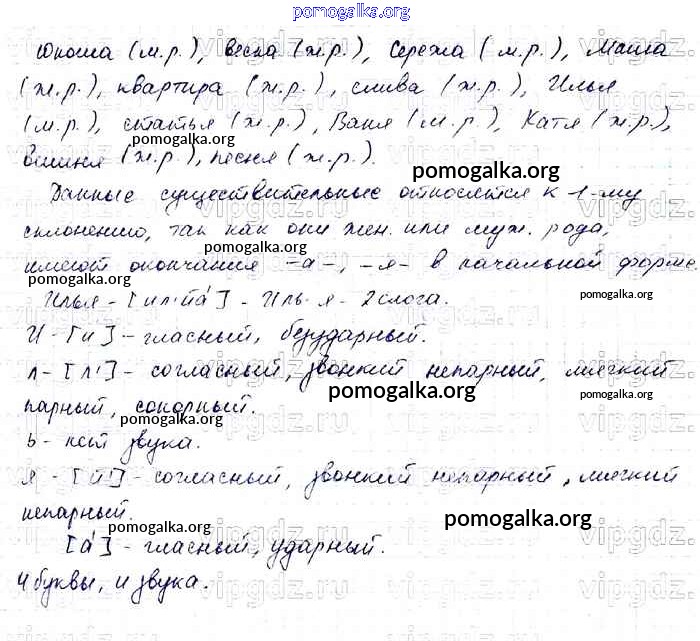 pomogalka.org
юноша (м.р.), весна (ж.р.), Сережа (м.р.), Маша
(ж.р.), квартира (ж.р.), слива (ж.р.), Илья
(м.р.), статья (ж.р.), Ваня (м.р.), Катя (ж.р.),
вишня (ж.р.), песня (ж.р.).
Данные существительные относятся к 1-му
склонению, так как они жен. или муж. рода,
имеют окончания -а-, -я- в начальной форме.
Илья - [ил'йа́] - Иль-я - 2 слога.
И - [и] - гласный, безударный.
л - [л'] - согласный, звонкий непарный, мягкий
парный, сонорный.
ь - нет звука.
я - [й'] - согласный, звонкий непарный, мягкий
непарный.
[а́] - гласный, ударный.
4 буквы, 4 звука.
pomogalka.org
pomogalka.org
pomogalka.org
pomogalka.org
pomogalka.org
pomogalka.org
pomogalka.org
pomogalka.org
pomogalka.org
pomogalka.org
pomogalka.org
vipgdz.ru